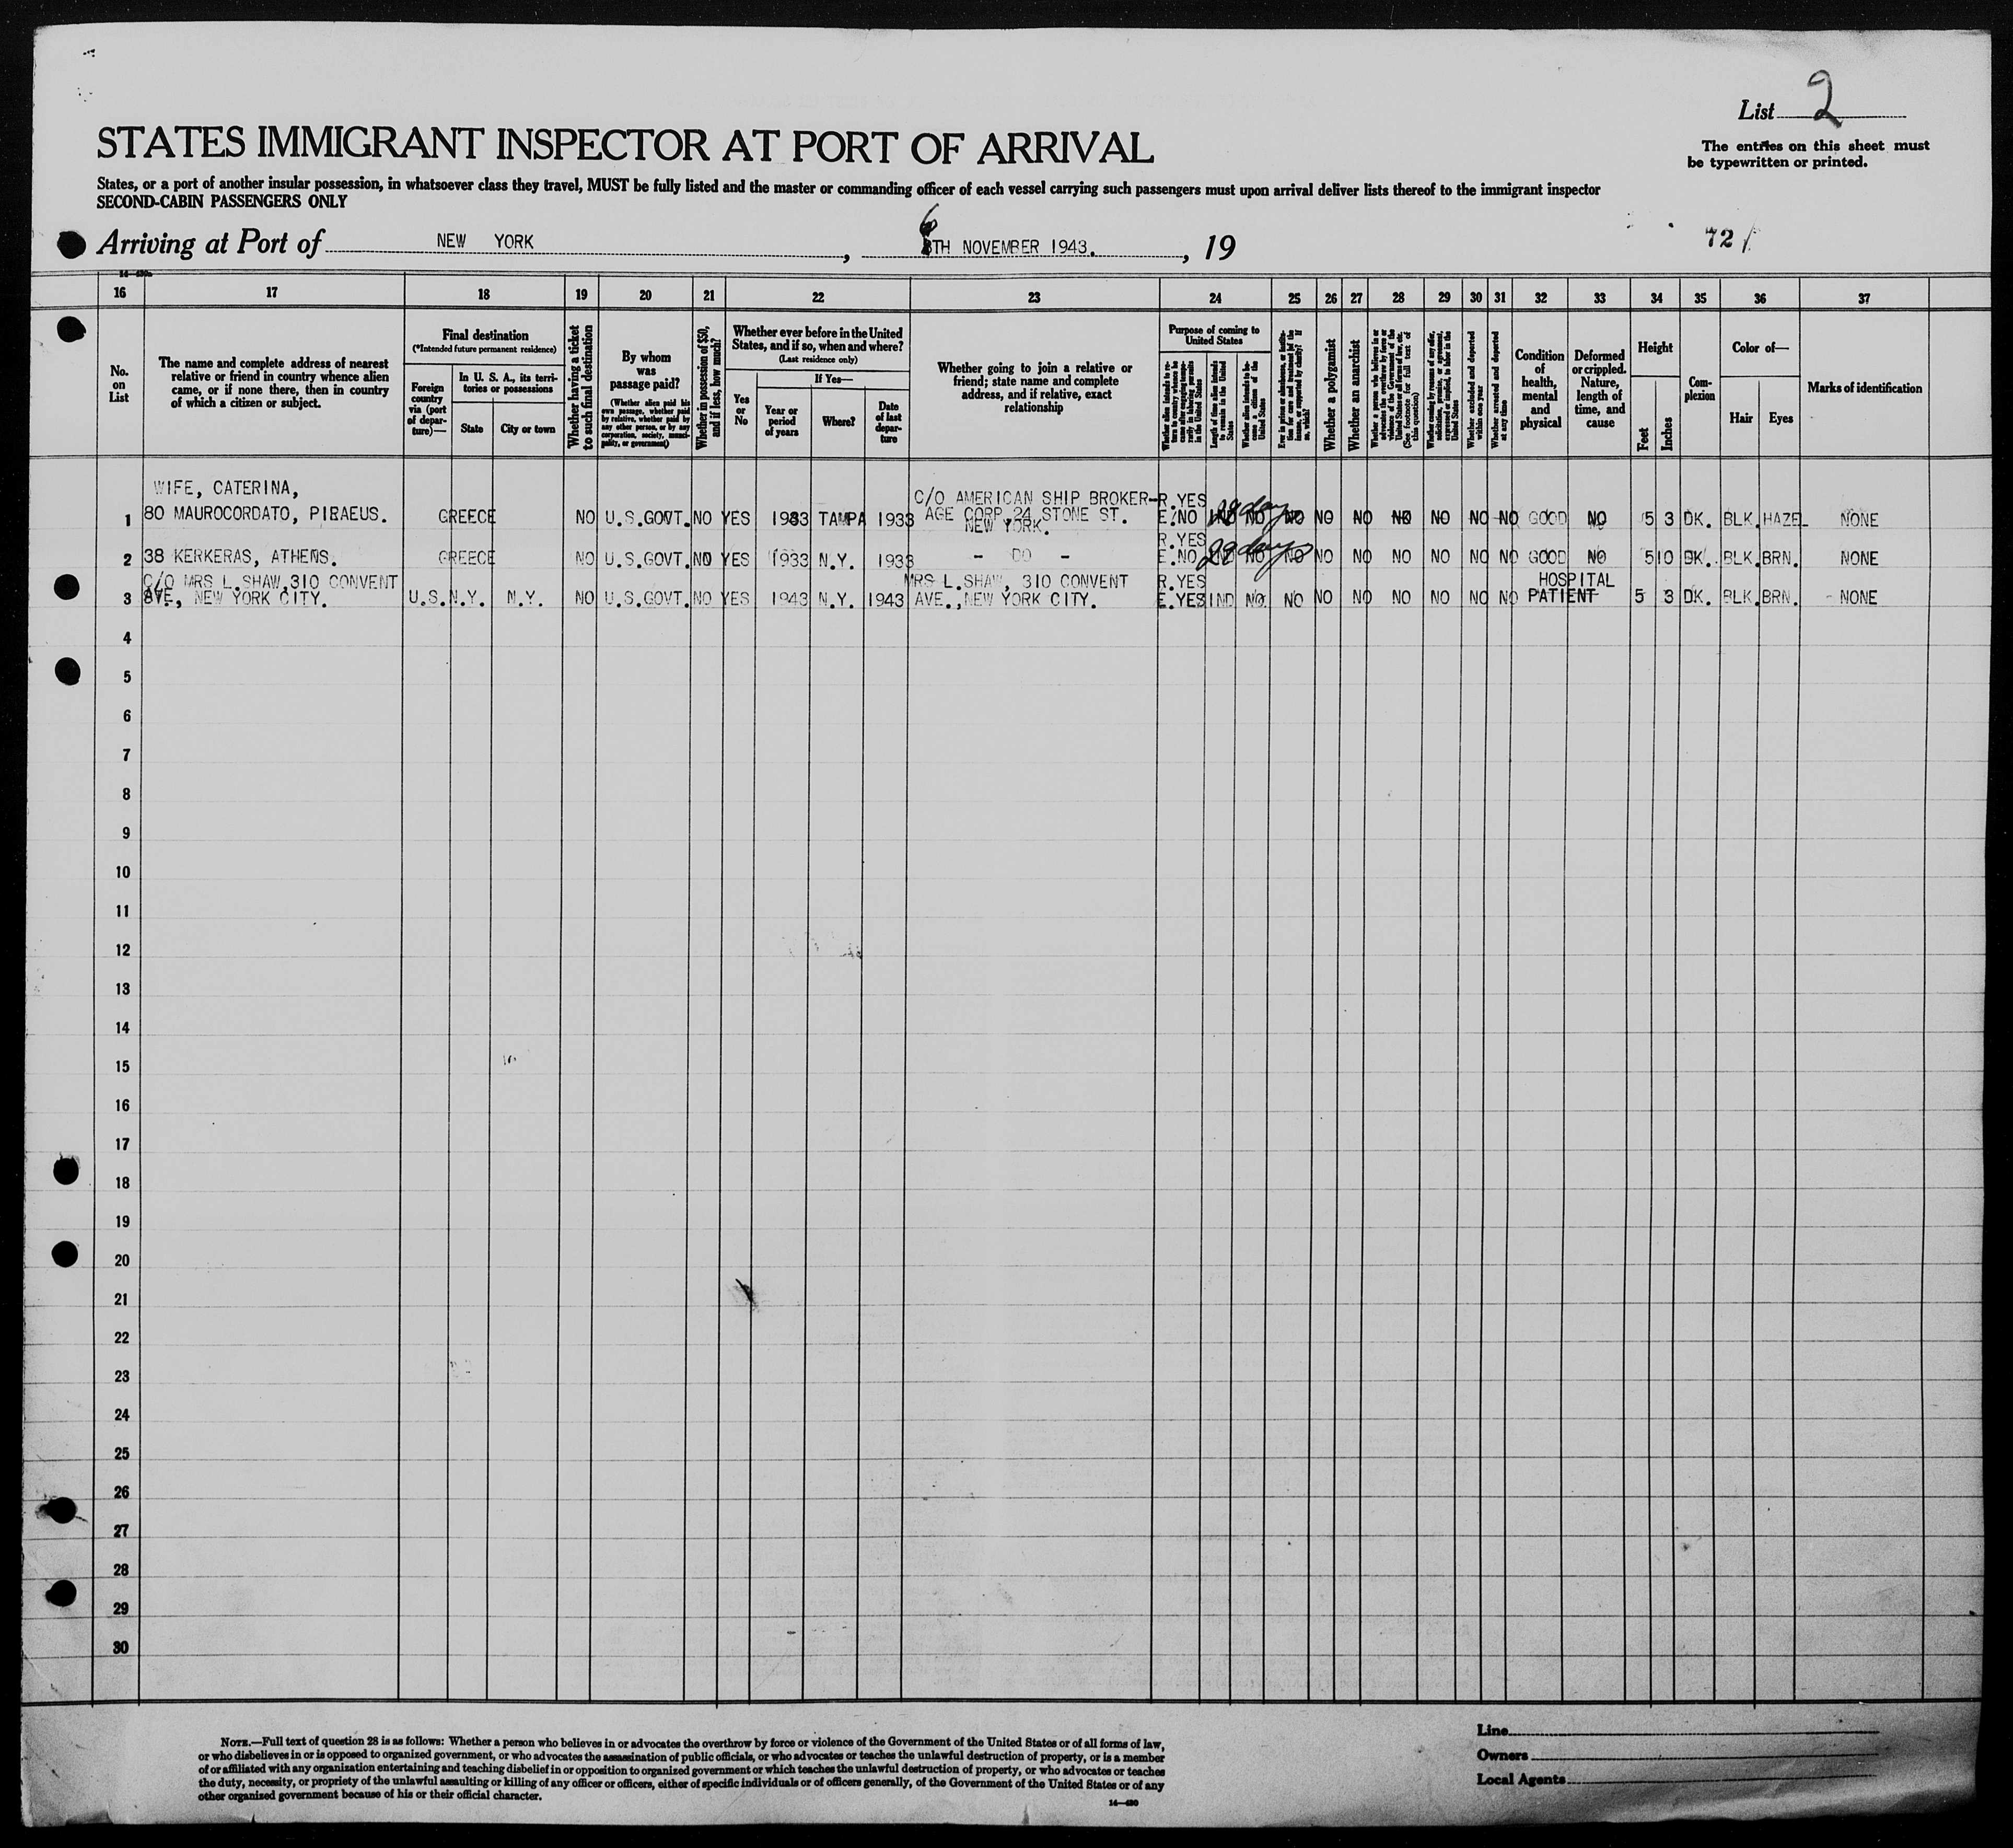 List 2
The entries on this sheet must
be typewritten or printed.
STATES IMMIGRANT INSPECTOR AT PORT OF ARRIVAL
States, or a port of another insular possession, in whatsoever class they travel, MUST be fully listed and the master or commanding officer of each vessel carrying such passengers must upon arrival deliver lists thereof to the immigrant inspector
SECOND-CABIN PASSENGERS ONLY
Arriving at Port of NEW YORK, 6TH NOVEMBER 1943., 19
72
14—430
16 17 18 19 20 21 22 23 24 25 26 27 28 29 30 31 32 33 34 35 36 37
No.
on
List
The name and complete address of nearest
relative or friend in country whence alien
came, or if none there, then in country
of which a citizen or subject.
Final destination
(*Intended future permanent residence)
Foreign
country
via (port
of depar-
ture)—
In U. S. A., its terri-
tories or possessions
State
City or town
Whether having a ticket
to such final destination
By whom
was
passage paid?
(Whether alien paid his
own passage, whether paid
by relative, whether paid by
any other person, or by any
corporation, society, munici-
pality, or government)
Whether in possession of $50,
and if less, how much?
Whether ever before in the United
States, and if so, when and where?
(Last residence only)
Yes
or
No
If Yes—
Year or
period
of years
Where?
Date
of last
depar-
ture
Whether going to join a relative or
friend; state name and complete
address, and if relative, exact
relationship
Purpose of coming to
United States
Whether alien intends to re-
turn to country whence he
came after engaging tempo-
rarily in laboring pursuits
in the United States
Length of time alien intends
to remain in the United
States
Whether alien intends to be-
come a citizen of the
United States
Ever in prison or almshouse, or institu-
tion for care and treatment of the
insane, or supported by charity? If
so, which?
Whether a polygamist
Whether an anarchist
Whether a person who believes in or
advocates the overthrow by force or
violence of the Government of the
United States or all forms of law, etc.
(See footnote for full text of
this question)
Whether coming by reason of any offer,
solicitation, promise, or agreement,
expressed or implied, to labor in the
United States
Whether excluded and deported
within one year
Whether arrested and deported
at any time
Condition
of
health,
mental
and
physical
Deformed
or crippled.
Nature,
length of
time, and
cause
Height
Feet
Inches
Com-
plexion
Color of—
Hair
Eyes
Marks of identification
WIFE, CATERINA, C/O AMERICAN SHIP BROKER- R.YES
1 80 MAUROCORDATO, PIRAEUS. GREECE NO U.S.GOVT. NO YES 1933 TAMPA 1933 AGE CORP 24 STONE ST. E.NO 29 days NO NO NO NO NO NO NO NO GOOD NO 5 3 DK. BLK. HAZEL NONE
NEW YORK.
R.YES
2 38 KERKERAS, ATHENS. GREECE NO U.S.GOVT. NO YES 1933 N.Y. 1933 - DO - E.NO 29 days NO NO NO NO NO NO NO NO GOOD NO 5 10 DK. BLK. BRN. NONE
C/O MRS L.SHAW,310 CONVENT MRS L.SHAW, 310 CONVENT R.YES HOSPITAL
3 AVE., NEW YORK CITY. U.S. N.Y. N.Y. NO U.S.GOVT. NO YES 1943 N.Y. 1943 AVE.,NEW YORK CITY. E.YES IND NO NO NO NO NO NO NO NO PATIENT 5 3 DK. BLK. BRN. - NONE
4
5
6
7
8
9
10
11
12
13
14
15
16
17
18
19
20
21
22
23
24
25
26
27
28
29
30
NOTE.—Full text of question 28 is as follows: Whether a person who believes in or advocates the overthrow by force or violence of the Government of the United States or of all forms of law,
or who disbelieves in or is opposed to organized government, or who advocates the assassination of public officials, or who advocates or teaches the unlawful destruction of property, or is a member
of or affiliated with any organization entertaining and teaching disbelief in or opposition to organized government or which teaches the unlawful destruction of property, or who advocates or teaches
the duty, necessity, or propriety of the unlawful assaulting or killing of any officer or officers, either of specific individuals or of officers generally, of the Government of the United States or of any
other organized government because of his or their official character.
14—430
Line
Owners
Local Agents